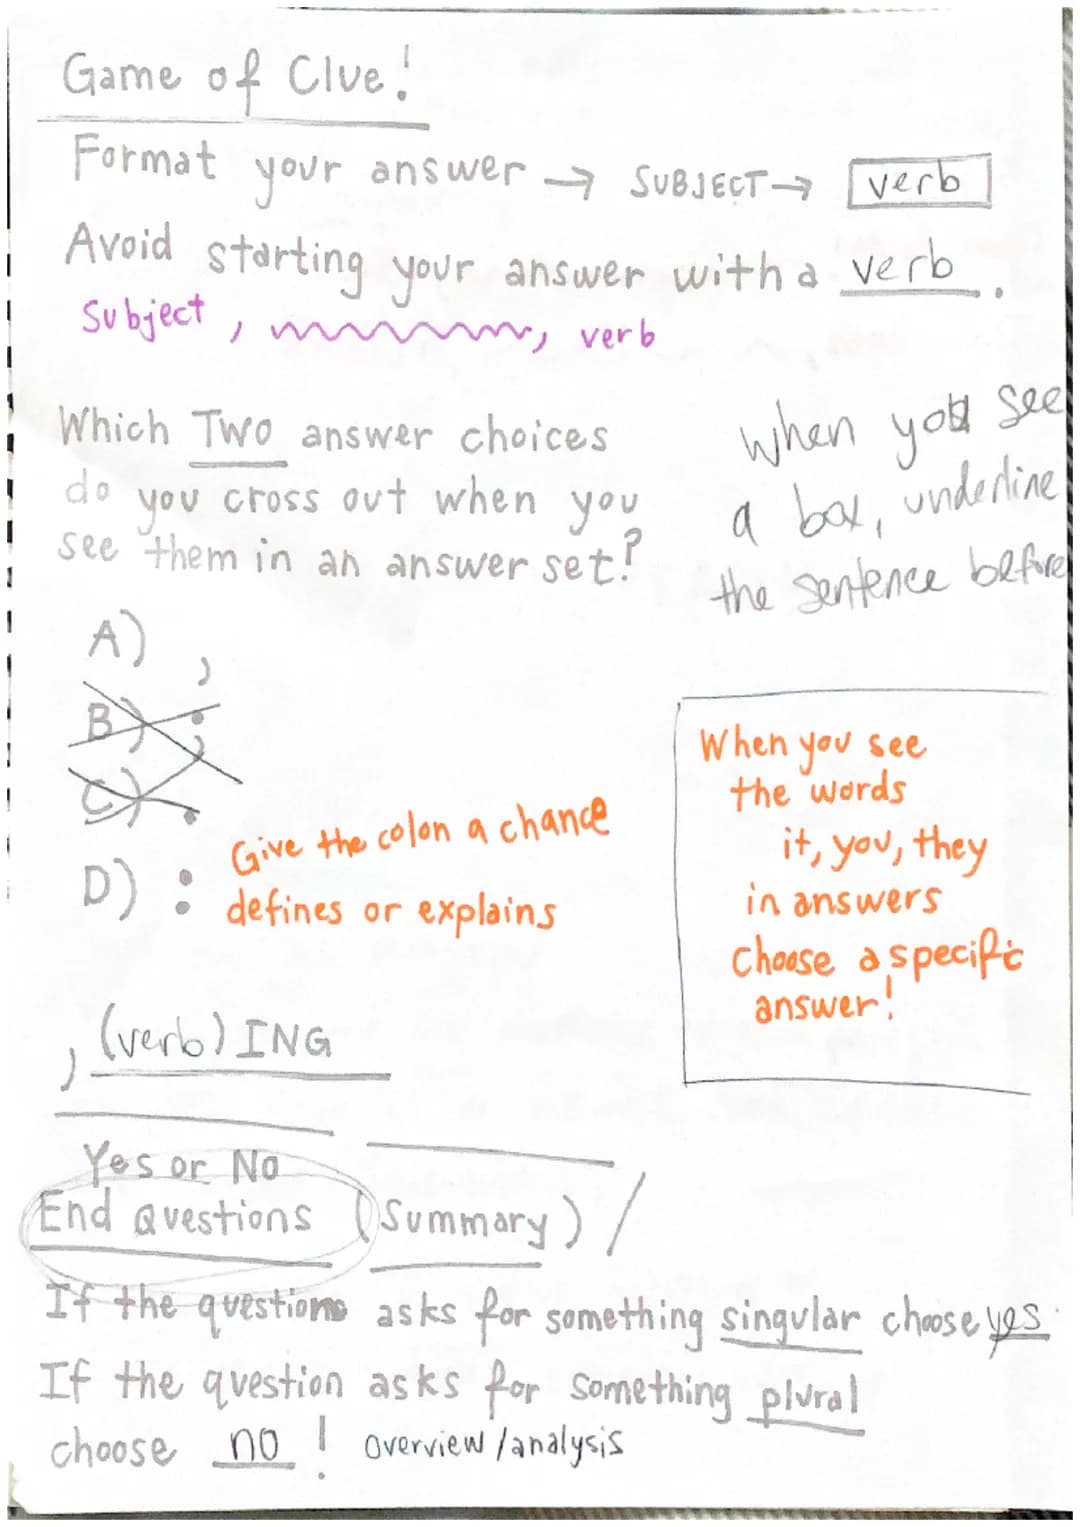 Game of Clue!
Format your answer → SUBJECT → verb
Avoid starting your answer with a verb.
Subject, ~~~~~~, verb
Which Two answer choices
do you cross out when you
see them in an answer set?
When you see
a box, underline
the sentence before
A) ,
B) ;
C) .
D) :
Give the colon a chance
defines or explains
When you see
the words
it, you, they
in answers
Choose a specific
answer!
, (verb) ING
Yes or No
End Questions (Summary) /
If the questions asks for something singular choose yes.
If the question asks for something plural
choose no! overview/analysis